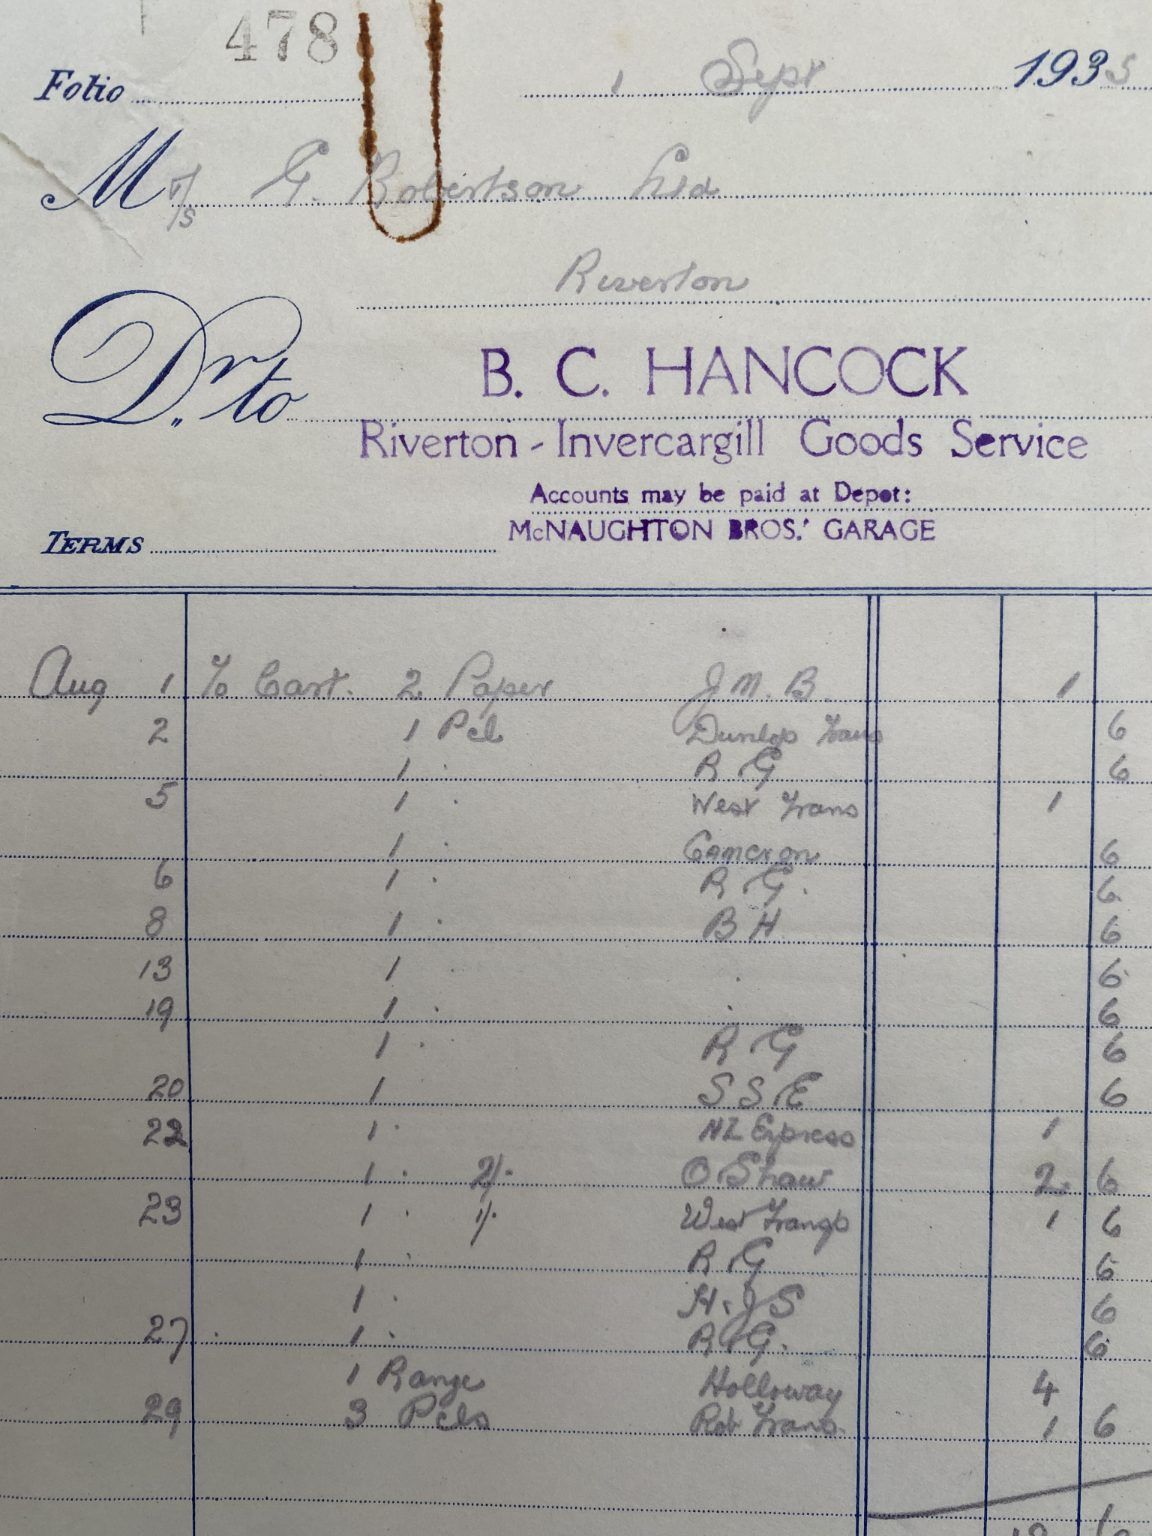 478
Folio 1 Sept 1935
M r/s G. Robertson Ltd
Riverton
Dr. to B. C. HANCOCK
Riverton - Invercargill Goods Service
Accounts may be paid at Depot:
TERMS McNAUGHTON BROS.' GARAGE
Aug 1 To Cart. 2 Paper J M. B. 1
2 1 Pcl Dunlop Trans 6
1 . R G 6
5 1 . West Trans 1
1 . Cameron 6
6 1 . R G. 6
8 1 . B H 6
13 1 . . 6
19 1 . . 6
1 . R G 6
20 1 S S E 6
22 1 . NZ Express 1
1 . 2/- O Shaw 2 6
23 1 . 1/- West Transp 1 6
1 . R G 6
1 . H. J S 6
27 . 1 . R G. 6
1 Range Holloway 4
29 3 Pcls Rob Trans. 1 6